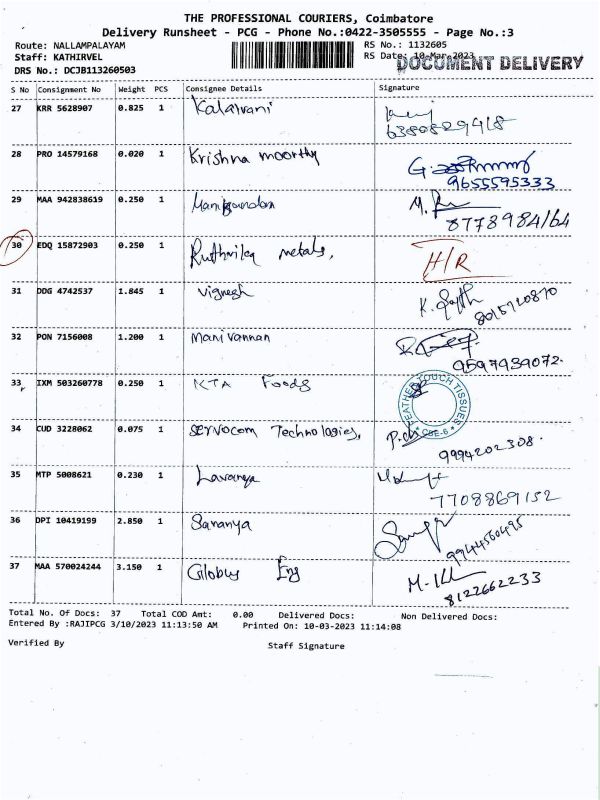 THE PROFESSIONAL COURIERS, Coimbatore
Delivery Runsheet - PCG - Phone No.:0422-3505555 - Page No.:3
Route: NALLAMPALAYAM RS No.: 1132605
Staff: KATHIRVEL RS Date: 10-Mar-2023
DOCUMENT DELIVERY
DRS No.: DCJB113260503
S No Consignment No Weight PCS Consignee Details Signature
27 KRR 5628907 0.825 1 Kalaivani
6380829418
28 PRO 14579168 0.020 1 Krishna moorthy
9655595333
29 MAA 942838619 0.250 1
8778984164
30 EDQ 15872903 0.250 1 Ruthvika metals, H/R
31 DDG 4742537 1.845 1 Vignesh
8015720870
32 PON 7156008 1.200 1 Manivannan
9597939072.
33 IXM 503260778 0.250 1 KTA Foods
FEATHER TOUCH TISSUES
CBE-6
34 CUD 3228062 0.075 1 Servocom Technologies,
9994202308.
35 MTP 5008621 0.230 1 Lavanya
7708869152
36 DPI 10419199 2.850 1 Sananya
9944560495
37 MAA 570024244 3.150 1 Globus Eng
8122662233
Total No. Of Docs: 37 Total COD Amt: 0.00 Delivered Docs: Non Delivered Docs:
Entered By :RAJIPCG 3/10/2023 11:13:50 AM Printed On: 10-03-2023 11:14:08
Verified By Staff Signature